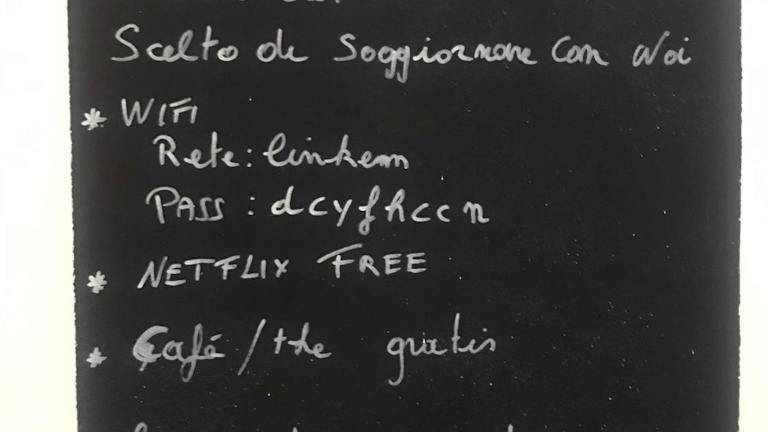 Scelto di Soggiornare Con Noi
* WIFI
Rete: linkem
PASS: dcyfhccn
* NETFLIX FREE
* Café/the gratis